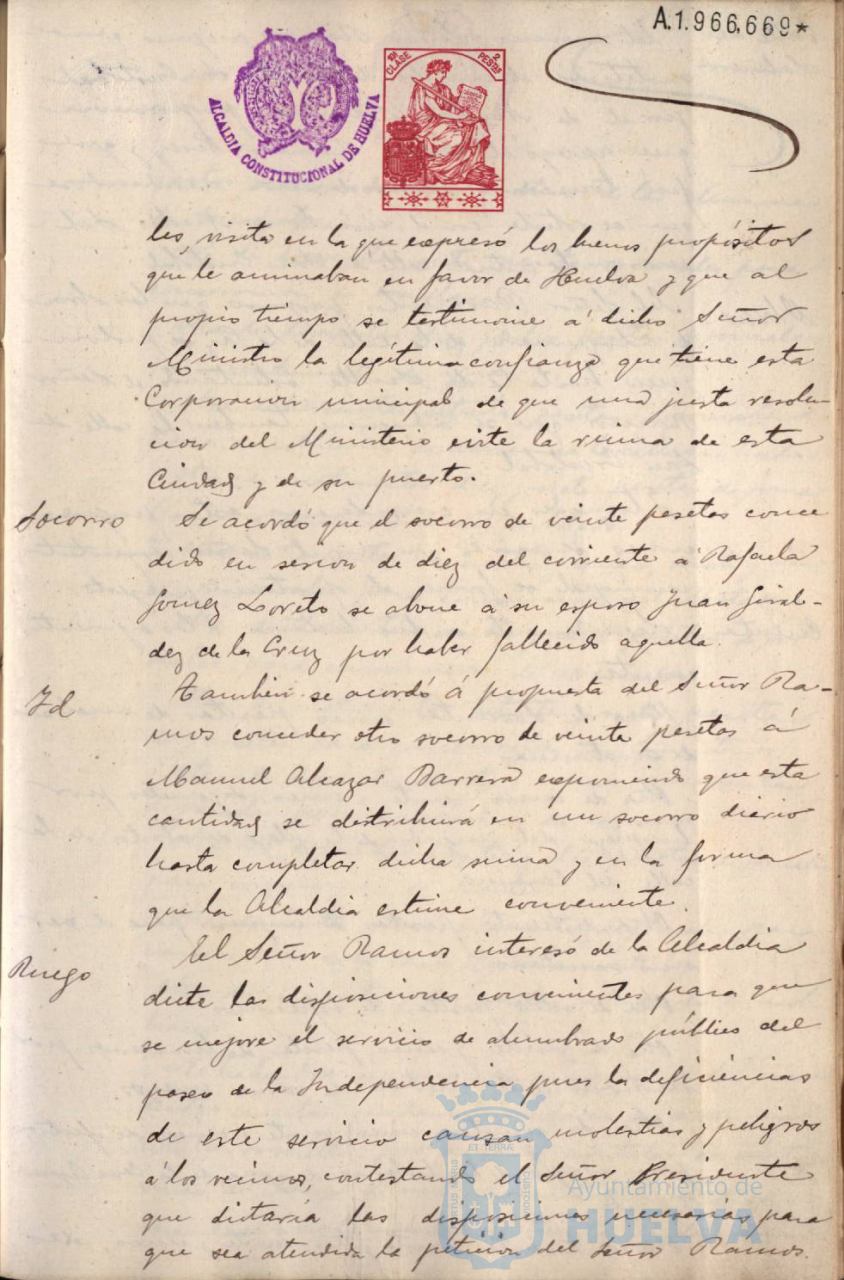 A.1.966,669*
ALCALDIA CONSTITUCIONAL DE HUELVA
CLASE
2 PESETAS
les, visita en la que expresó los buenos propósitos
que le animaban en favor de Huelva y que al
propio tiempo se testimonie á dicho Señor
Ministro la legítima confianza que tiene esta
Corporacion municipal de que una justa resolu-
cion del Ministerio evite la ruina de esta
Ciudad y de su puerto.
Socorro Se acordó que el socorro de veinte pesetas conce
dido en sesion de diez del corriente á Rafaela
Gomez Loreto se abone á su esposo Juan Giral-
dez de la Cruz por haber fallecido aquella.
Id Tambien se acordó á propuesta del Señor Ra-
mos conceder otro socorro de veinte pesetas á
Manuel Alcazar Barrera exponiendo que esta
cantidad se distribuirá en un socorro diario
hasta completar dicha suma y en la forma
que la Alcaldia estime conveniente.
Ruego El Señor Ramos interesó de la Alcaldia
dicte las disposiciones convenientes para que
se mejore el servicio de alumbrado público del
paseo de la Independencia pues las deficiencias
de este servicio causan molestias y peligros
á los vecinos, contestando el Señor Presidente
que dictaría las disposiciones necesarias para
que sea atendida la peticion del Señor Ramos.
Ayuntamiento de
HUELVA